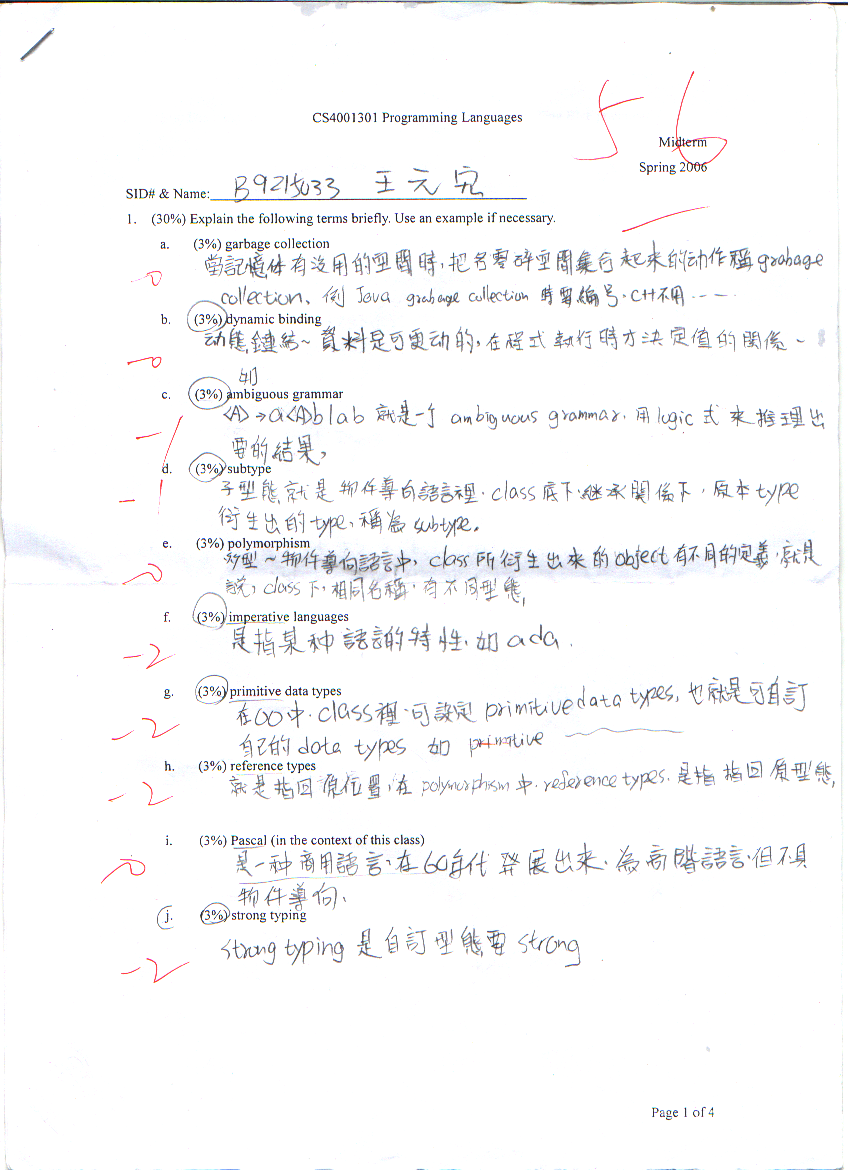 56
CS4001301 Programming Languages
Midterm
Spring 2006
SID# & Name: B9215033 王元宛
1. (30%) Explain the following terms briefly. Use an example if necessary.
a. (3%) garbage collection
-0 當記憶体有沒用的空間時,把各零碎空間集合起來的动作稱 grabage
collection、例 Java grabage collection 時要編号. C++不用……
b. (3%) dynamic binding
-0 动態鏈結~資料是可更动的,在程式執行時才決定值的關係~
如
c. (3%) ambiguous grammar
-1 <A>→a<A>b|ab 就是一个 ambiguous grammar. 用 logic 式來推理出
要的結果,
d. (3%) subtype
-1 子型態就是物件導向語言裡. class 底下.繼承關係下,原本type
衍生出的type、稱為 subtype.
e. (3%) polymorphism
-0 多型~物件導向語言中, class 所衍生出來的 object 有不同的定義.就是
說, class下,相同名稱,有不同型態,
f. (3%) imperative languages
-2 是指某种語言的特性.如 ada.
g. (3%) primitive data types
-2 在OO中. class裡.可設定 primitive data types, 也就是可自訂
自己的 data types 如 primitive
h. (3%) reference types
-2 就是指回原位置,在 polymorphism 中. reference types. 是指指回原型態,
i. (3%) Pascal (in the context of this class)
-0 是一种商用語言.在60年代發展出來.為高階語言.但不具
物件導向、
j. (3%) strong typing
-2 strong typing 是自訂型態要 strong
Page 1 of 4